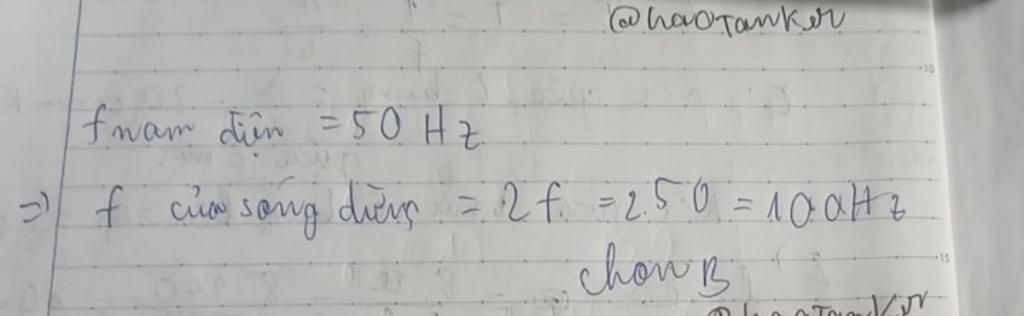 @haoTanker
10
f nam điện = 50 Hz
=> f của sóng dừng = 2f = 2.50 = 100Hz
15
chọn B
@haoTanker